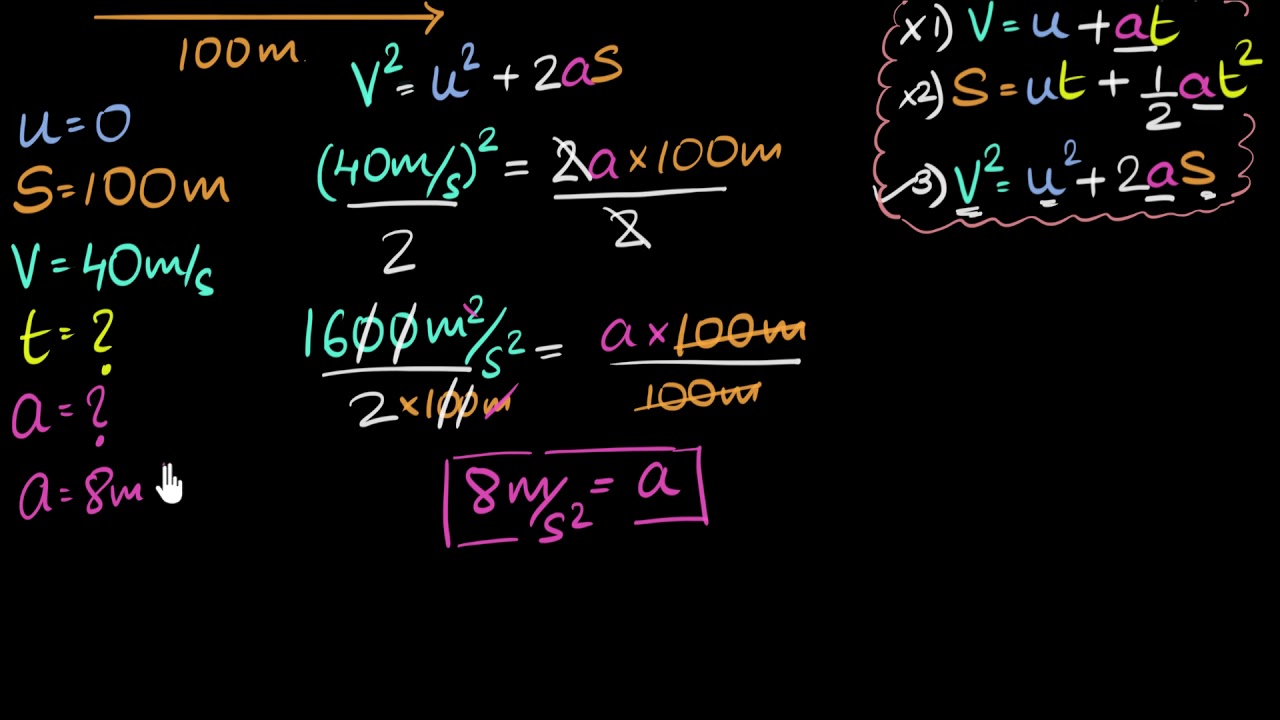 100m
u=0
S=100m
V=40m/s
t=?
a=?
a=8m
V²=u²+2aS
(40m/s)²=2a×100m
2 2
1600m²/s²=a×100m
2×100m 100m
8m/s²=a
×1) V=u+at
×2) S=ut+1/2at²
✓3) V²=u²+2aS